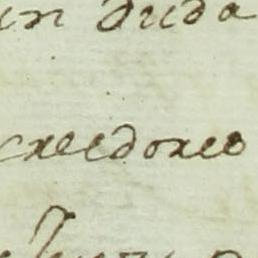 in duda
creedores